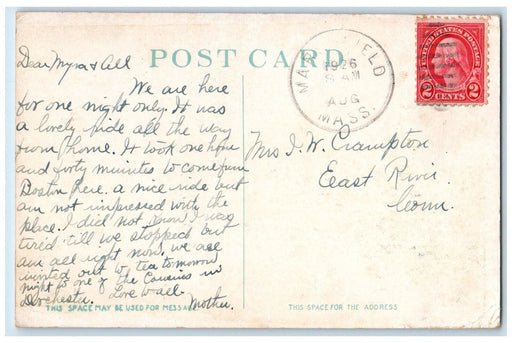 POST CARD
Dear Myra & All
We are here
for one night only. It was
a lovely ride all the way
from home. It took one hour
and forty minutes to come from
Boston here. a nice ride but
am not impressed with the
place. I did not know I was
tired till we stopped but
am all right now. we are
invited out to tea tomorrow
night to one of the Cousins in
Dorchester. Love to all.
Mother.
THIS SPACE MAY BE USED FOR MESSAGE
1926
AM
AUG
MASS.
UNITED STATES POSTAGE
2 CENTS 2
Mrs I. W. Crampton
East River
Conn.
THIS SPACE FOR THE ADDRESS